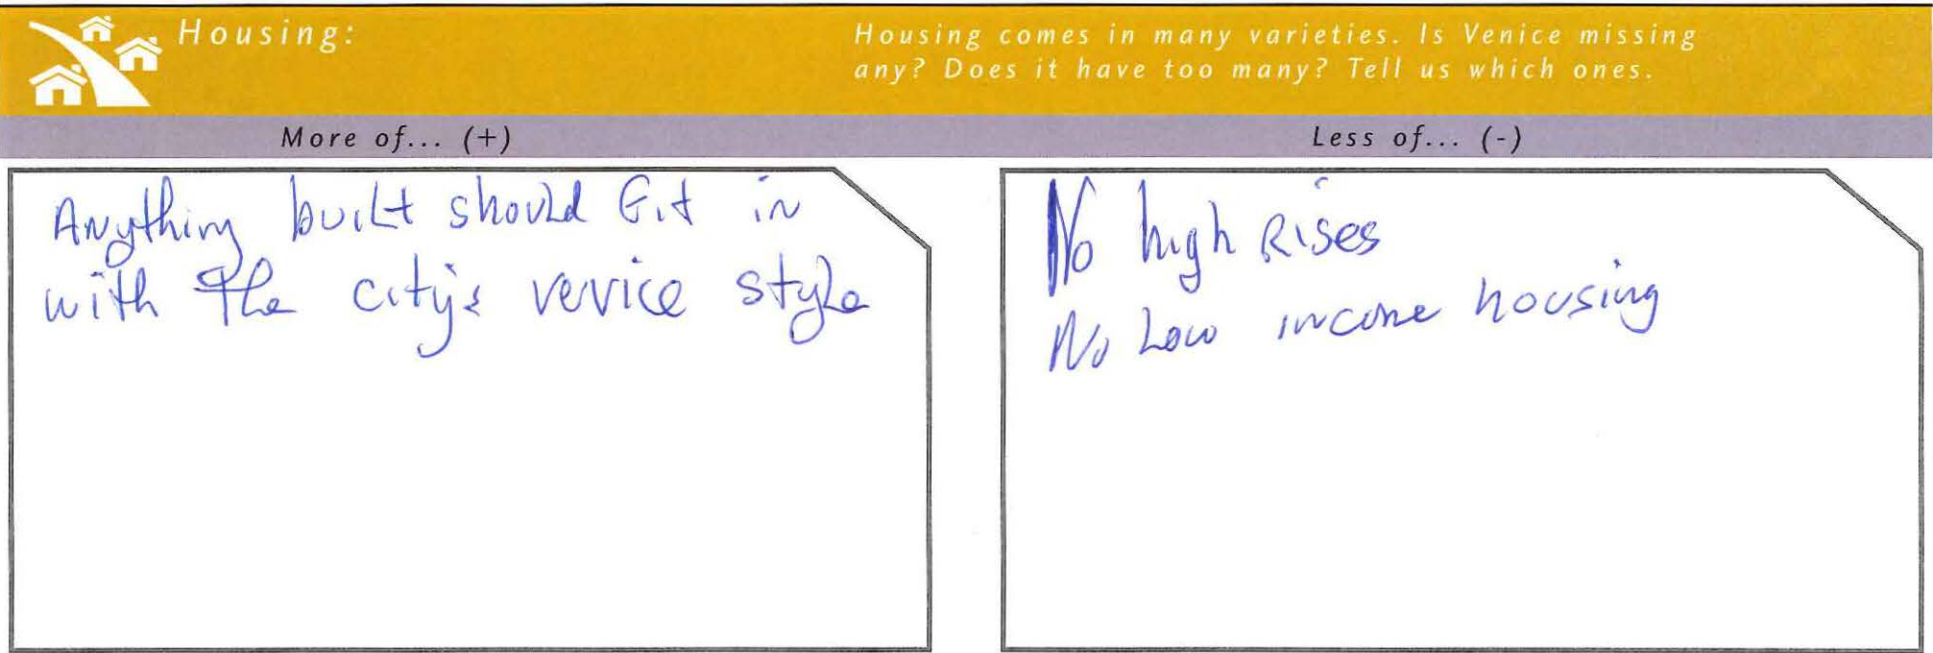 Housing:
Housing comes in many varieties. Is Venice missing
any? Does it have too many? Tell us which ones.
More of... (+)
Less of... (-)
Anything built should Fit in
with the city's venice style
No high Rises
No Low income housing